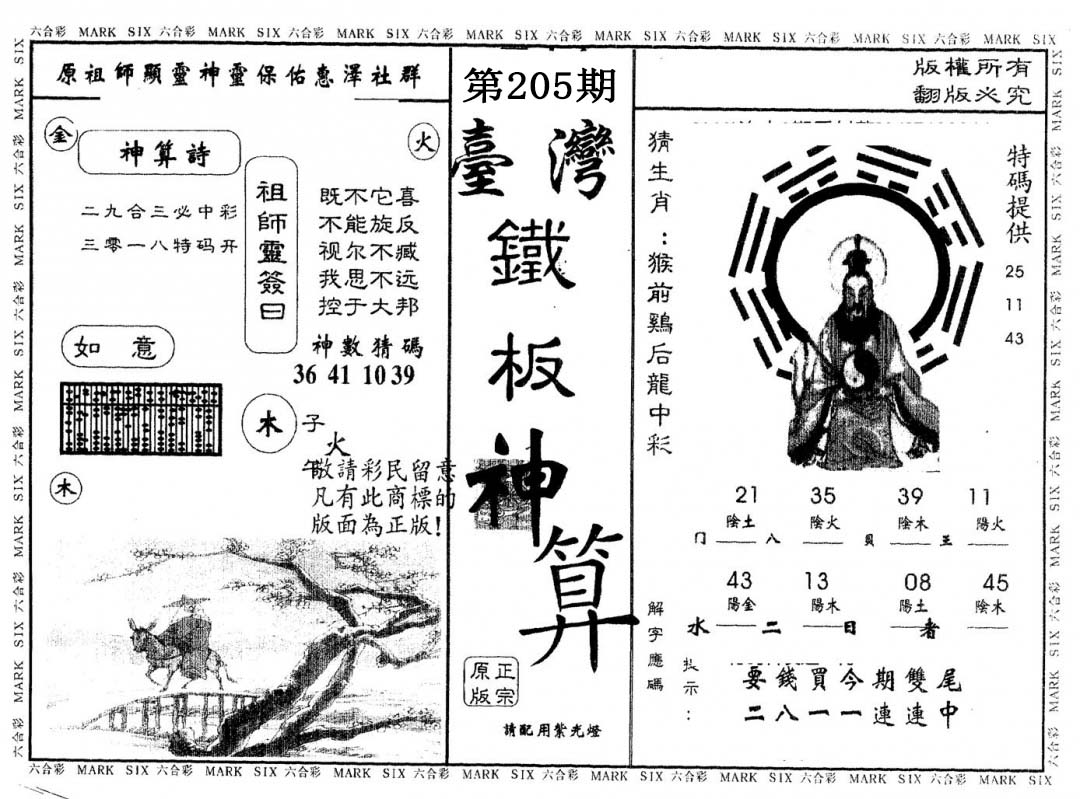 六合彩 MARK SIX 六合彩 MARK SIX 六合彩 MARK SIX 六合彩 MARK SIX 六合彩 MARK SIX 六合彩 MARK SIX 六合彩 MARK SIX 六合彩 MARK SIX
原祖師顯靈神靈保佑惠澤社群
金
火
神算詩
二九合三必中彩
三零一八特码开
祖師靈簽曰
既不它喜
不能旋反
视尔不臧
我思不远
控于大邦
如意
神數猜碼
36 41 10 39
木
子
火
午
木
敬請彩民留意
凡有此商標的
版面為正版!
第205期
臺灣
鐵
板
神
算
正宗
原版
請配用紫光燈
版權所有
翻版必究
猜生肖：猴前鷄后龍中彩
特碼提供
25
11
43
21 35 39 11
陰土 陰火 陰木 陽火
门 八 貝 王
43 13 08 45
陽金 陽木 陽土 陰木
水 二 日 者
解字應碼
提示：
要錢買今期雙尾
二八一一連連中
六合彩 MARK SIX 六合彩 MARK SIX 六合彩 MARK SIX 六合彩 MARK SIX 六合彩 MARK SIX 六合彩 MARK SIX 六合彩 MARK SIX 六合彩 MARK SIX